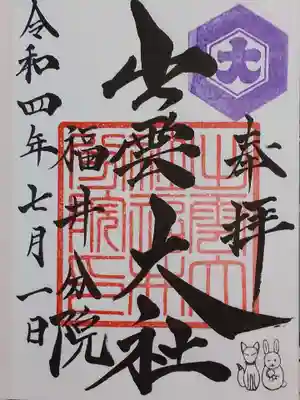 奉拝
大
出雲大社
福井分院
令和四年七月一日